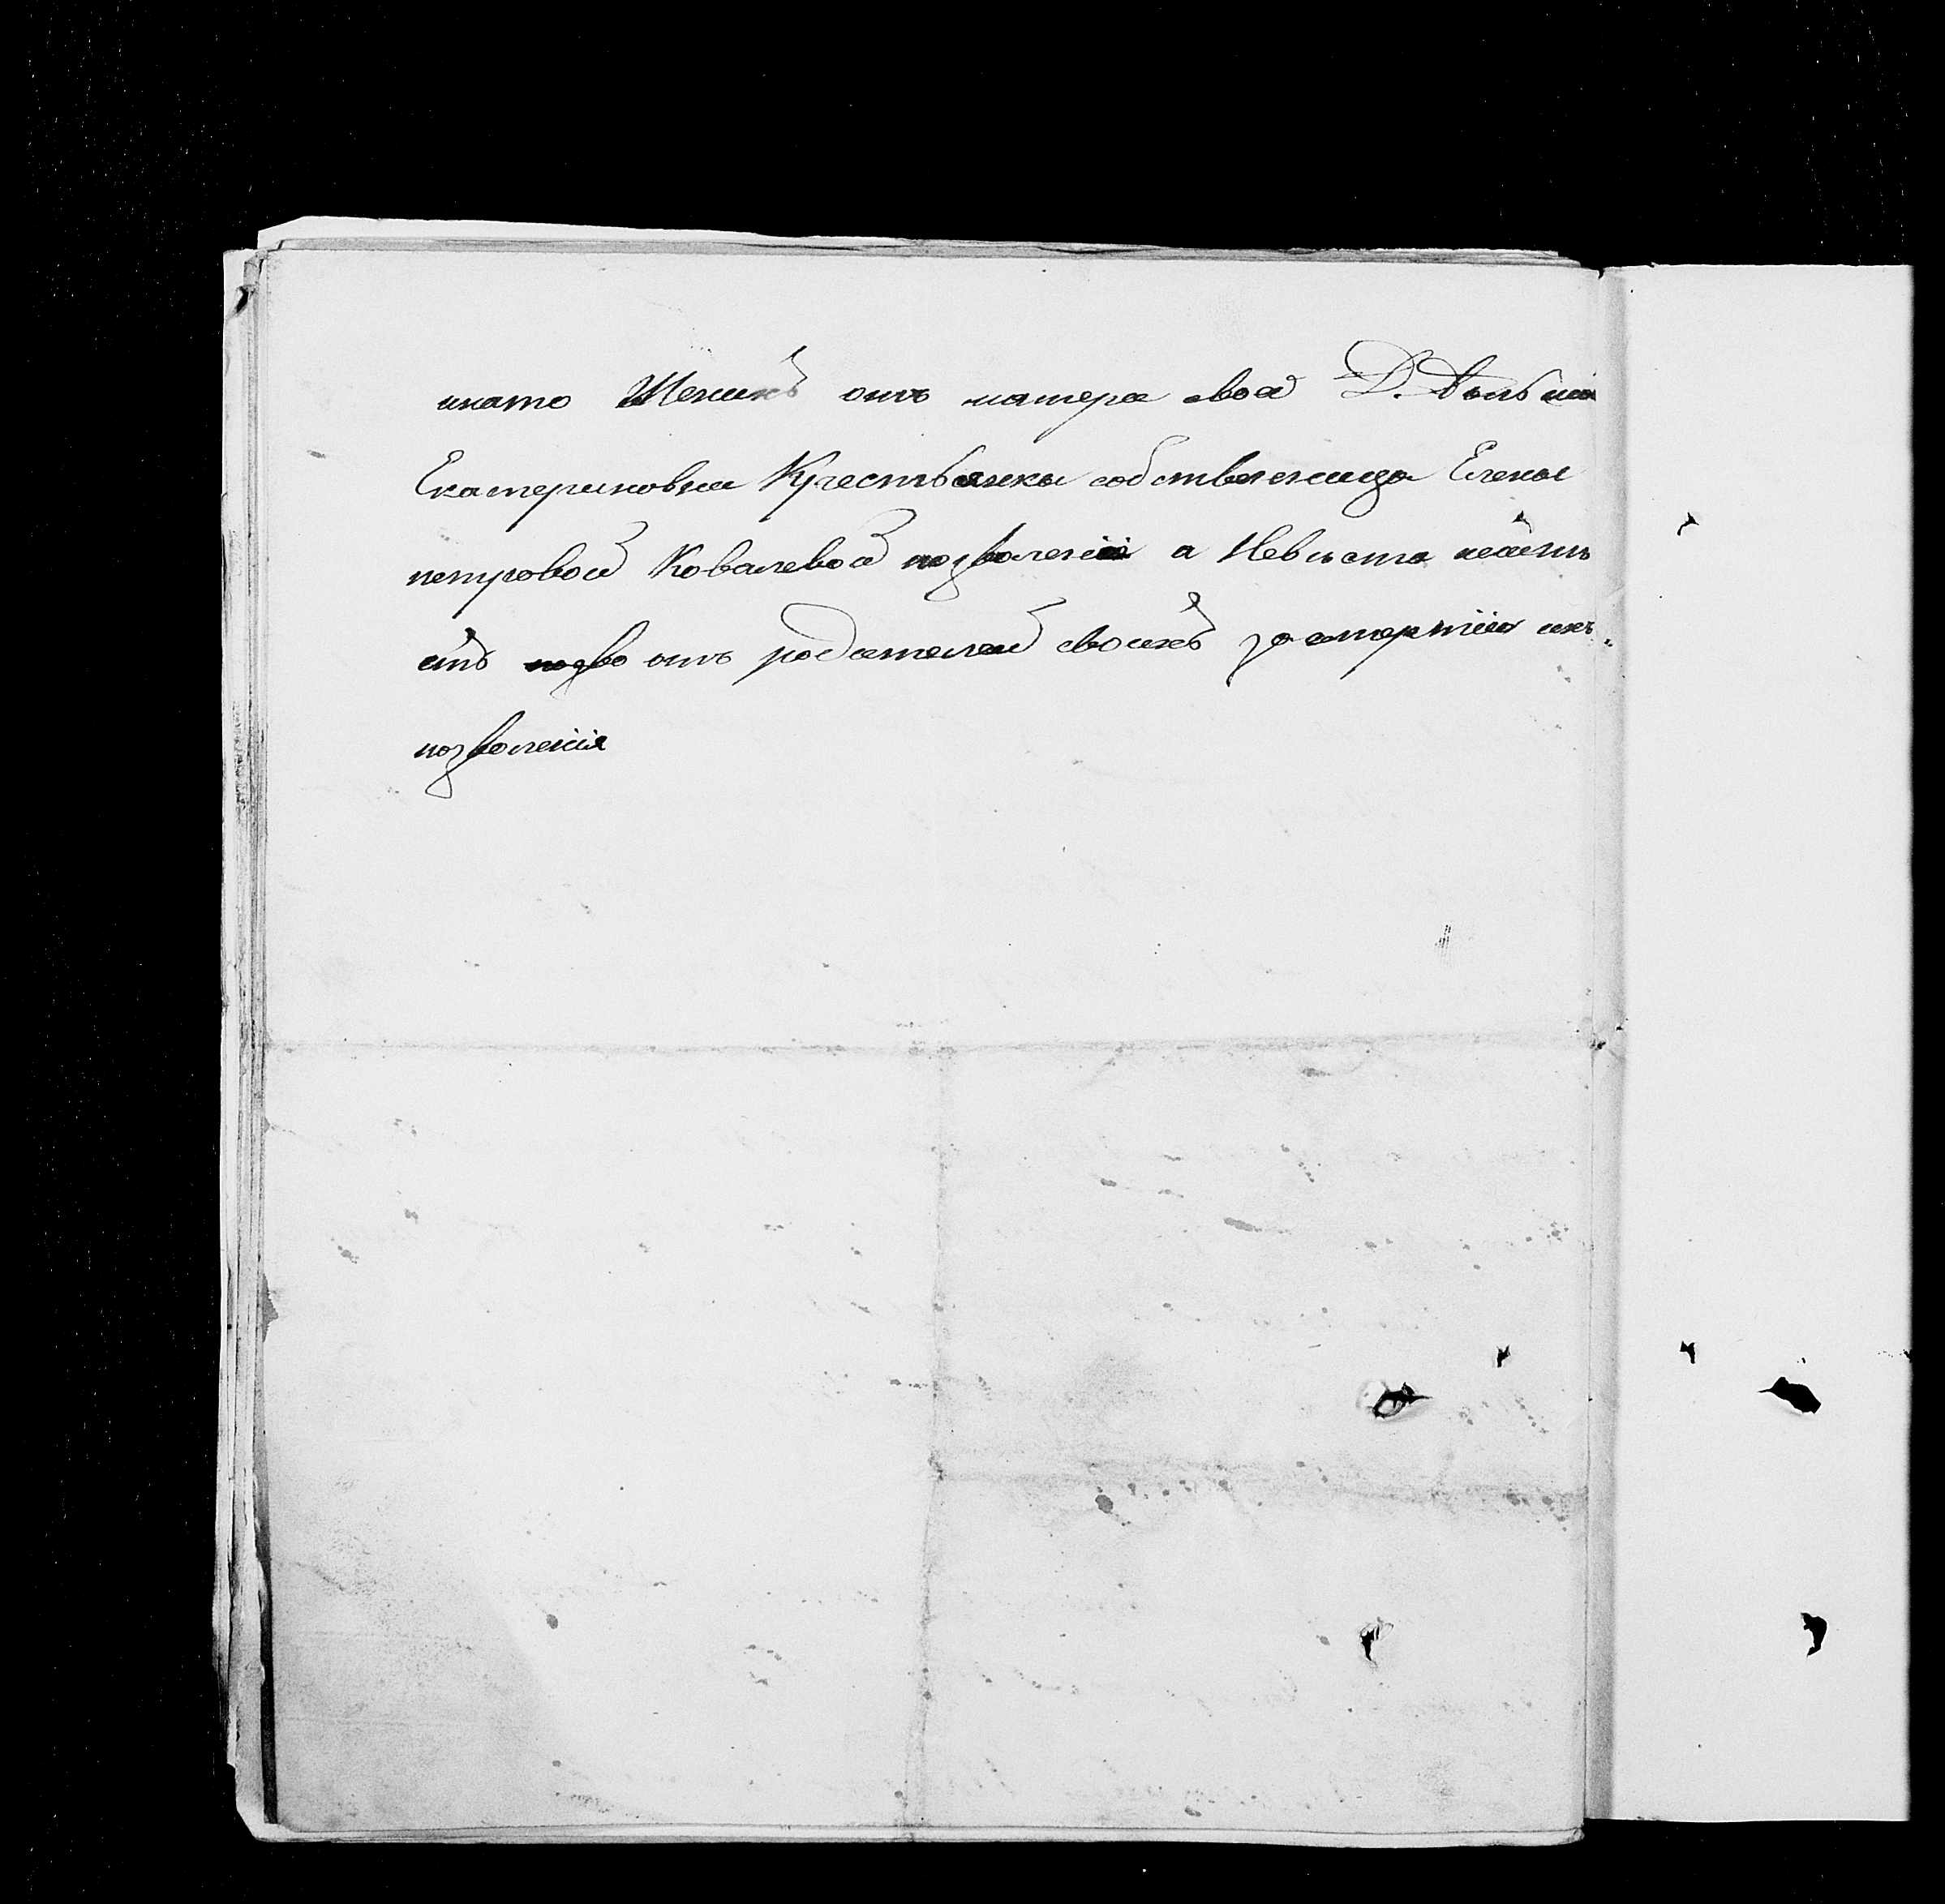 имато Женихъ отъ матери своей Д.
Екатериновки Крестьянки собственницы Елены
петровой Ковалевой позволеніе а Невѣста
позво отъ родителей своихъ за смертію ихъ
позволенія